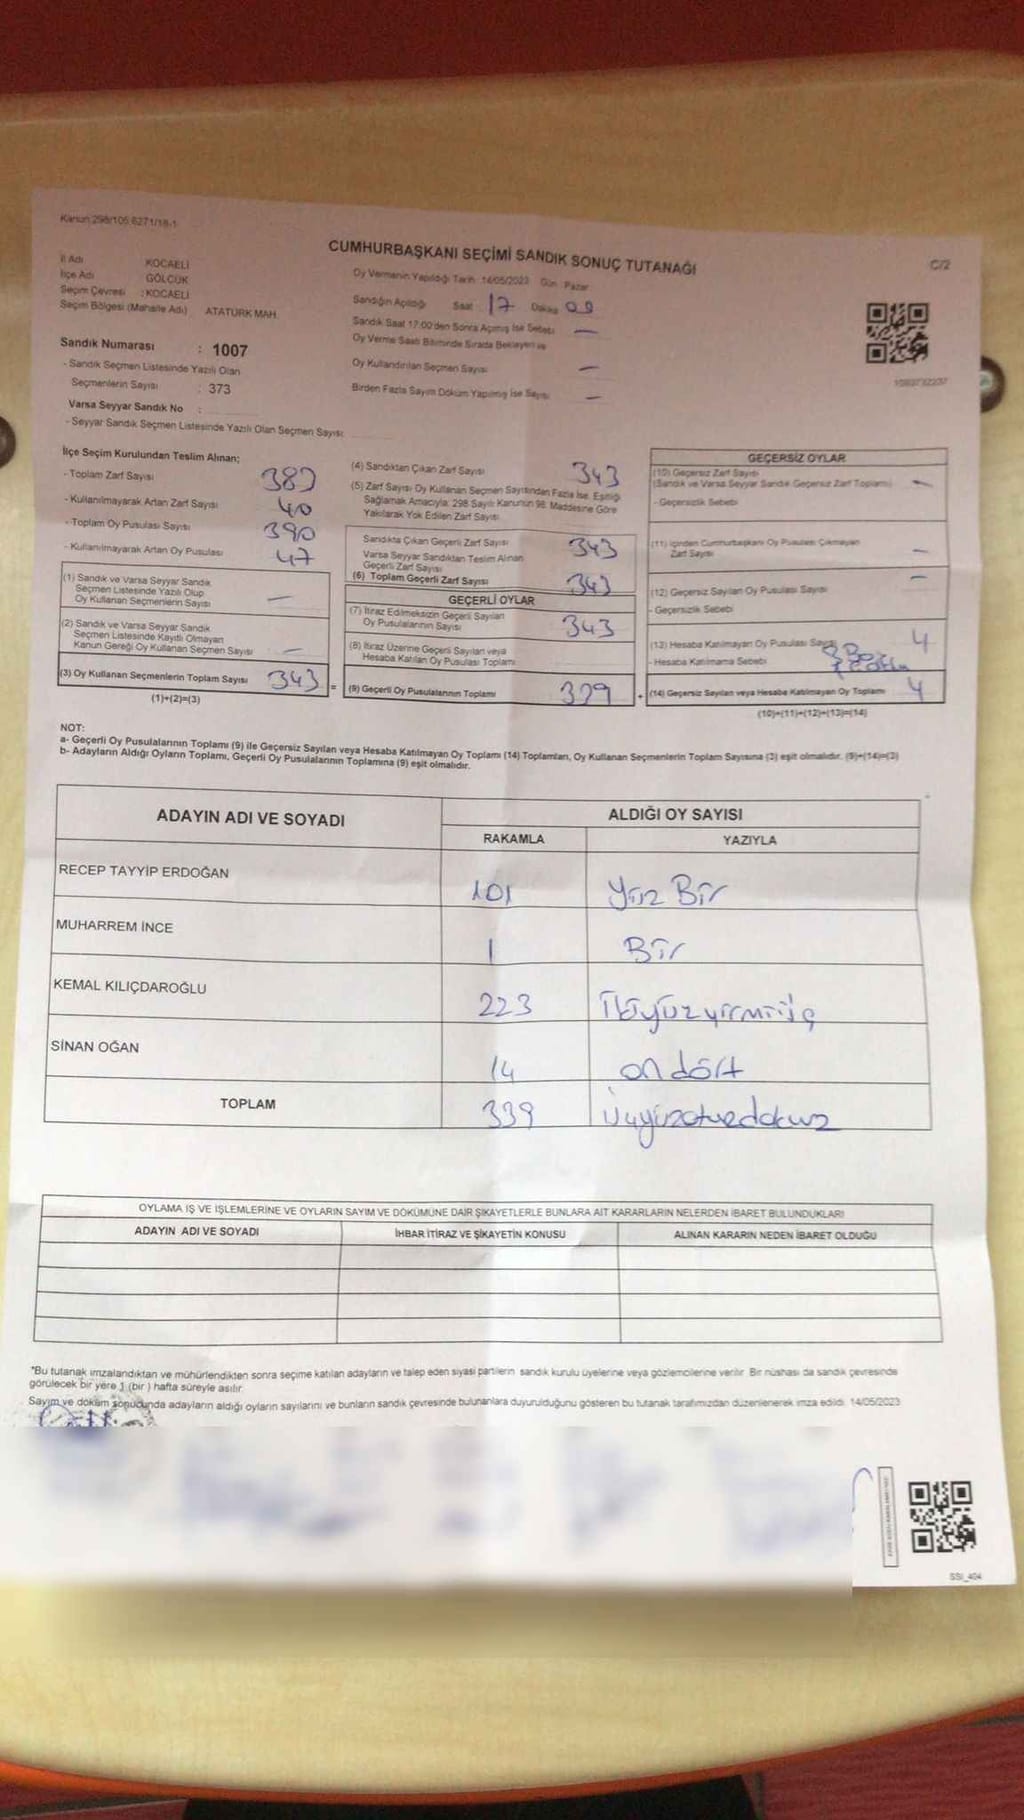 Kanun:298/105 6271/18-1
CUMHURBAŞKANI SEÇİMİ SANDIK SONUÇ TUTANAĞI
C/2
İl Adı KOCAELİ
İlçe Adı GÖLCÜK
Seçim Çevresi : KOCAELİ
Seçim Bölgesi (Mahalle Adı) ATATÜRK MAH.
Oy Vermenin Yapıldığı Tarih: 14/05/2023 Gün: Pazar
Sandığın Açıldığı Saat 17 Dakika 09
Sandık Saat 17:00'den Sonra Açılmış İse Sebebi —
Oy Verme Saati Bitiminde Sırada Bekleyen ve
Oy Kullandırılan Seçmen Sayısı —
Birden Fazla Sayım Döküm Yapılmış İse Sayısı —
Sandık Numarası : 1007
- Sandık Seçmen Listesinde Yazılı Olan
Seçmenlerin Sayısı : 373
Varsa Seyyar Sandık No :
- Seyyar Sandık Seçmen Listesinde Yazılı Olan Seçmen Sayısı:
İlçe Seçim Kurulundan Teslim Alınan;
- Toplam Zarf Sayısı
- Kullanılmayarak Artan Zarf Sayısı 40
- Toplam Oy Pusulası Sayısı 390
- Kullanılmayarak Artan Oy Pusulası 47
(1) Sandık ve Varsa Seyyar Sandık
Seçmen Listesinde Yazılı Olup
Oy Kullanan Seçmenlerin Sayısı —
(2) Sandık ve Varsa Seyyar Sandık
Seçmen Listesinde Kayıtlı Olmayan
Kanun Gereği Oy Kullanan Seçmen Sayısı —
(3) Oy Kullanan Seçmenlerin Toplam Sayısı 343
(1)+(2)=(3)
(4) Sandıktan Çıkan Zarf Sayısı 343
(5) Zarf Sayısı Oy Kullanan Seçmen Sayısından Fazla İse, Eşitliği
Sağlamak Amacıyla, 298 Sayılı Kanunun 98. Maddesine Göre
Yakılarak Yok Edilen Zarf Sayısı
Sandıkta Çıkan Geçerli Zarf Sayısı 343
Varsa Seyyar Sandıktan Teslim Alınan
Geçerli Zarf Sayısı
(6) Toplam Geçerli Zarf Sayısı 343
GEÇERLİ OYLAR
(7) İtiraz Edilmeksizin Geçerli Sayılan
Oy Pusulalarının Sayısı 343
(8) İtiraz Üzerine Geçerli Sayılan veya
Hesaba Katılan Oy Pusulası Toplamı
= (9) Geçerli Oy Pusulalarının Toplamı 339 +
GEÇERSİZ OYLAR
(10) Geçersiz Zarf Sayısı
(Sandık ve Varsa Seyyar Sandık Geçersiz Zarf Toplamı) —
- Geçersizlik Sebebi
(11) İçinden Cumhurbaşkanı Oy Pusulası Çıkmayan
Zarf Sayısı —
(12) Geçersiz Sayılan Oy Pusulası Sayısı —
- Geçersizlik Sebebi
(13) Hesaba Katılmayan Oy Pusulası Sayısı 4
- Hesaba Katılmama Sebebi
(14) Geçersiz Sayılan veya Hesaba Katılmayan Oy Toplamı 4
(10)+(11)+(12)+(13)=(14)
NOT:
a- Geçerli Oy Pusulalarının Toplamı (9) ile Geçersiz Sayılan veya Hesaba Katılmayan Oy Toplamı (14) Toplamları, Oy Kullanan Seçmenlerin Toplam Sayısına (3) eşit olmalıdır. (9)+(14)=(3)
b- Adayların Aldığı Oyların Toplamı, Geçerli Oy Pusulalarının Toplamına (9) eşit olmalıdır.
ADAYIN ADI VE SOYADI ALDIĞI OY SAYISI
RAKAMLA YAZIYLA
RECEP TAYYİP ERDOĞAN 101 Yüz Bir
MUHARREM İNCE 1 Bir
KEMAL KILIÇDAROĞLU 223 İkiyüzyirmiüç
SİNAN OĞAN 14 on dört
TOPLAM 339 Üçyüzotuzdokuz
OYLAMA İŞ VE İŞLEMLERİNE VE OYLARIN SAYIM VE DÖKÜMÜNE DAİR ŞİKAYETLERLE BUNLARA AİT KARARLARIN NELERDEN İBARET BULUNDUKLARI
ADAYIN ADI VE SOYADI İHBAR İTİRAZ VE ŞİKAYETİN KONUSU ALINAN KARARIN NEDEN İBARET OLDUĞU
*Bu tutanak imzalandıktan ve mühürlendikten sonra seçime katılan adayların ve talep eden siyasi partilerin sandık kurulu üyelerine veya gözlemcilerine verilir. Bir nüshası da sandık çevresinde
görülecek bir yere 1 (bir) hafta süreyle asılır.
Sayım ve döküm sonucunda adayların aldığı oyların sayılarını ve bunların sandık çevresinde bulunanlara duyurulduğunu gösteren bu tutanak tarafımızdan düzenlenerek imza edildi. 14/05/2023
SSI_404